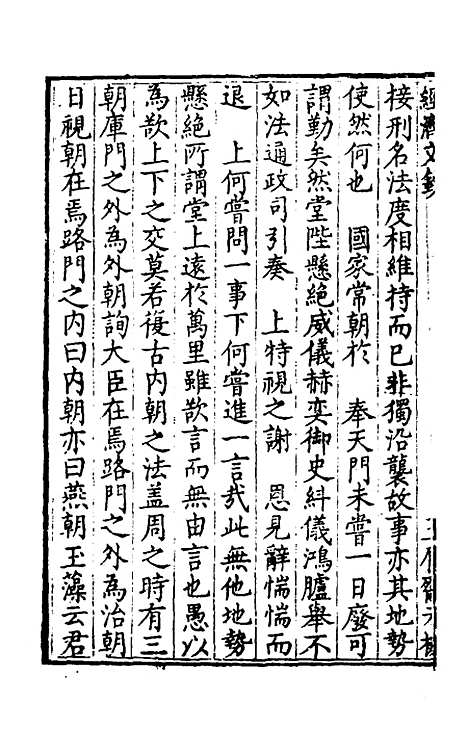 經濟文錄
接刑名法度相維持而已非獨沿襲故事亦其地勢
使然何也 國家常朝於 奉天門未嘗一日廢可
謂勤矣然堂陛懸絕威儀赫奕御史糾儀鴻臚舉不
如法通政司引奏 上特視之謝 恩見辭惴惴而
退 上何嘗問一事下何嘗進一言哉此無他地勢
懸絕所謂堂上遠於萬里雖欲言而無由言也愚以
為欲上下之交莫若復古內朝之法蓋周之時有三
朝庫門之外為外朝詢大臣在焉路門之外為治朝
日視朝在焉路門之內曰內朝亦曰燕朝玉藻云君